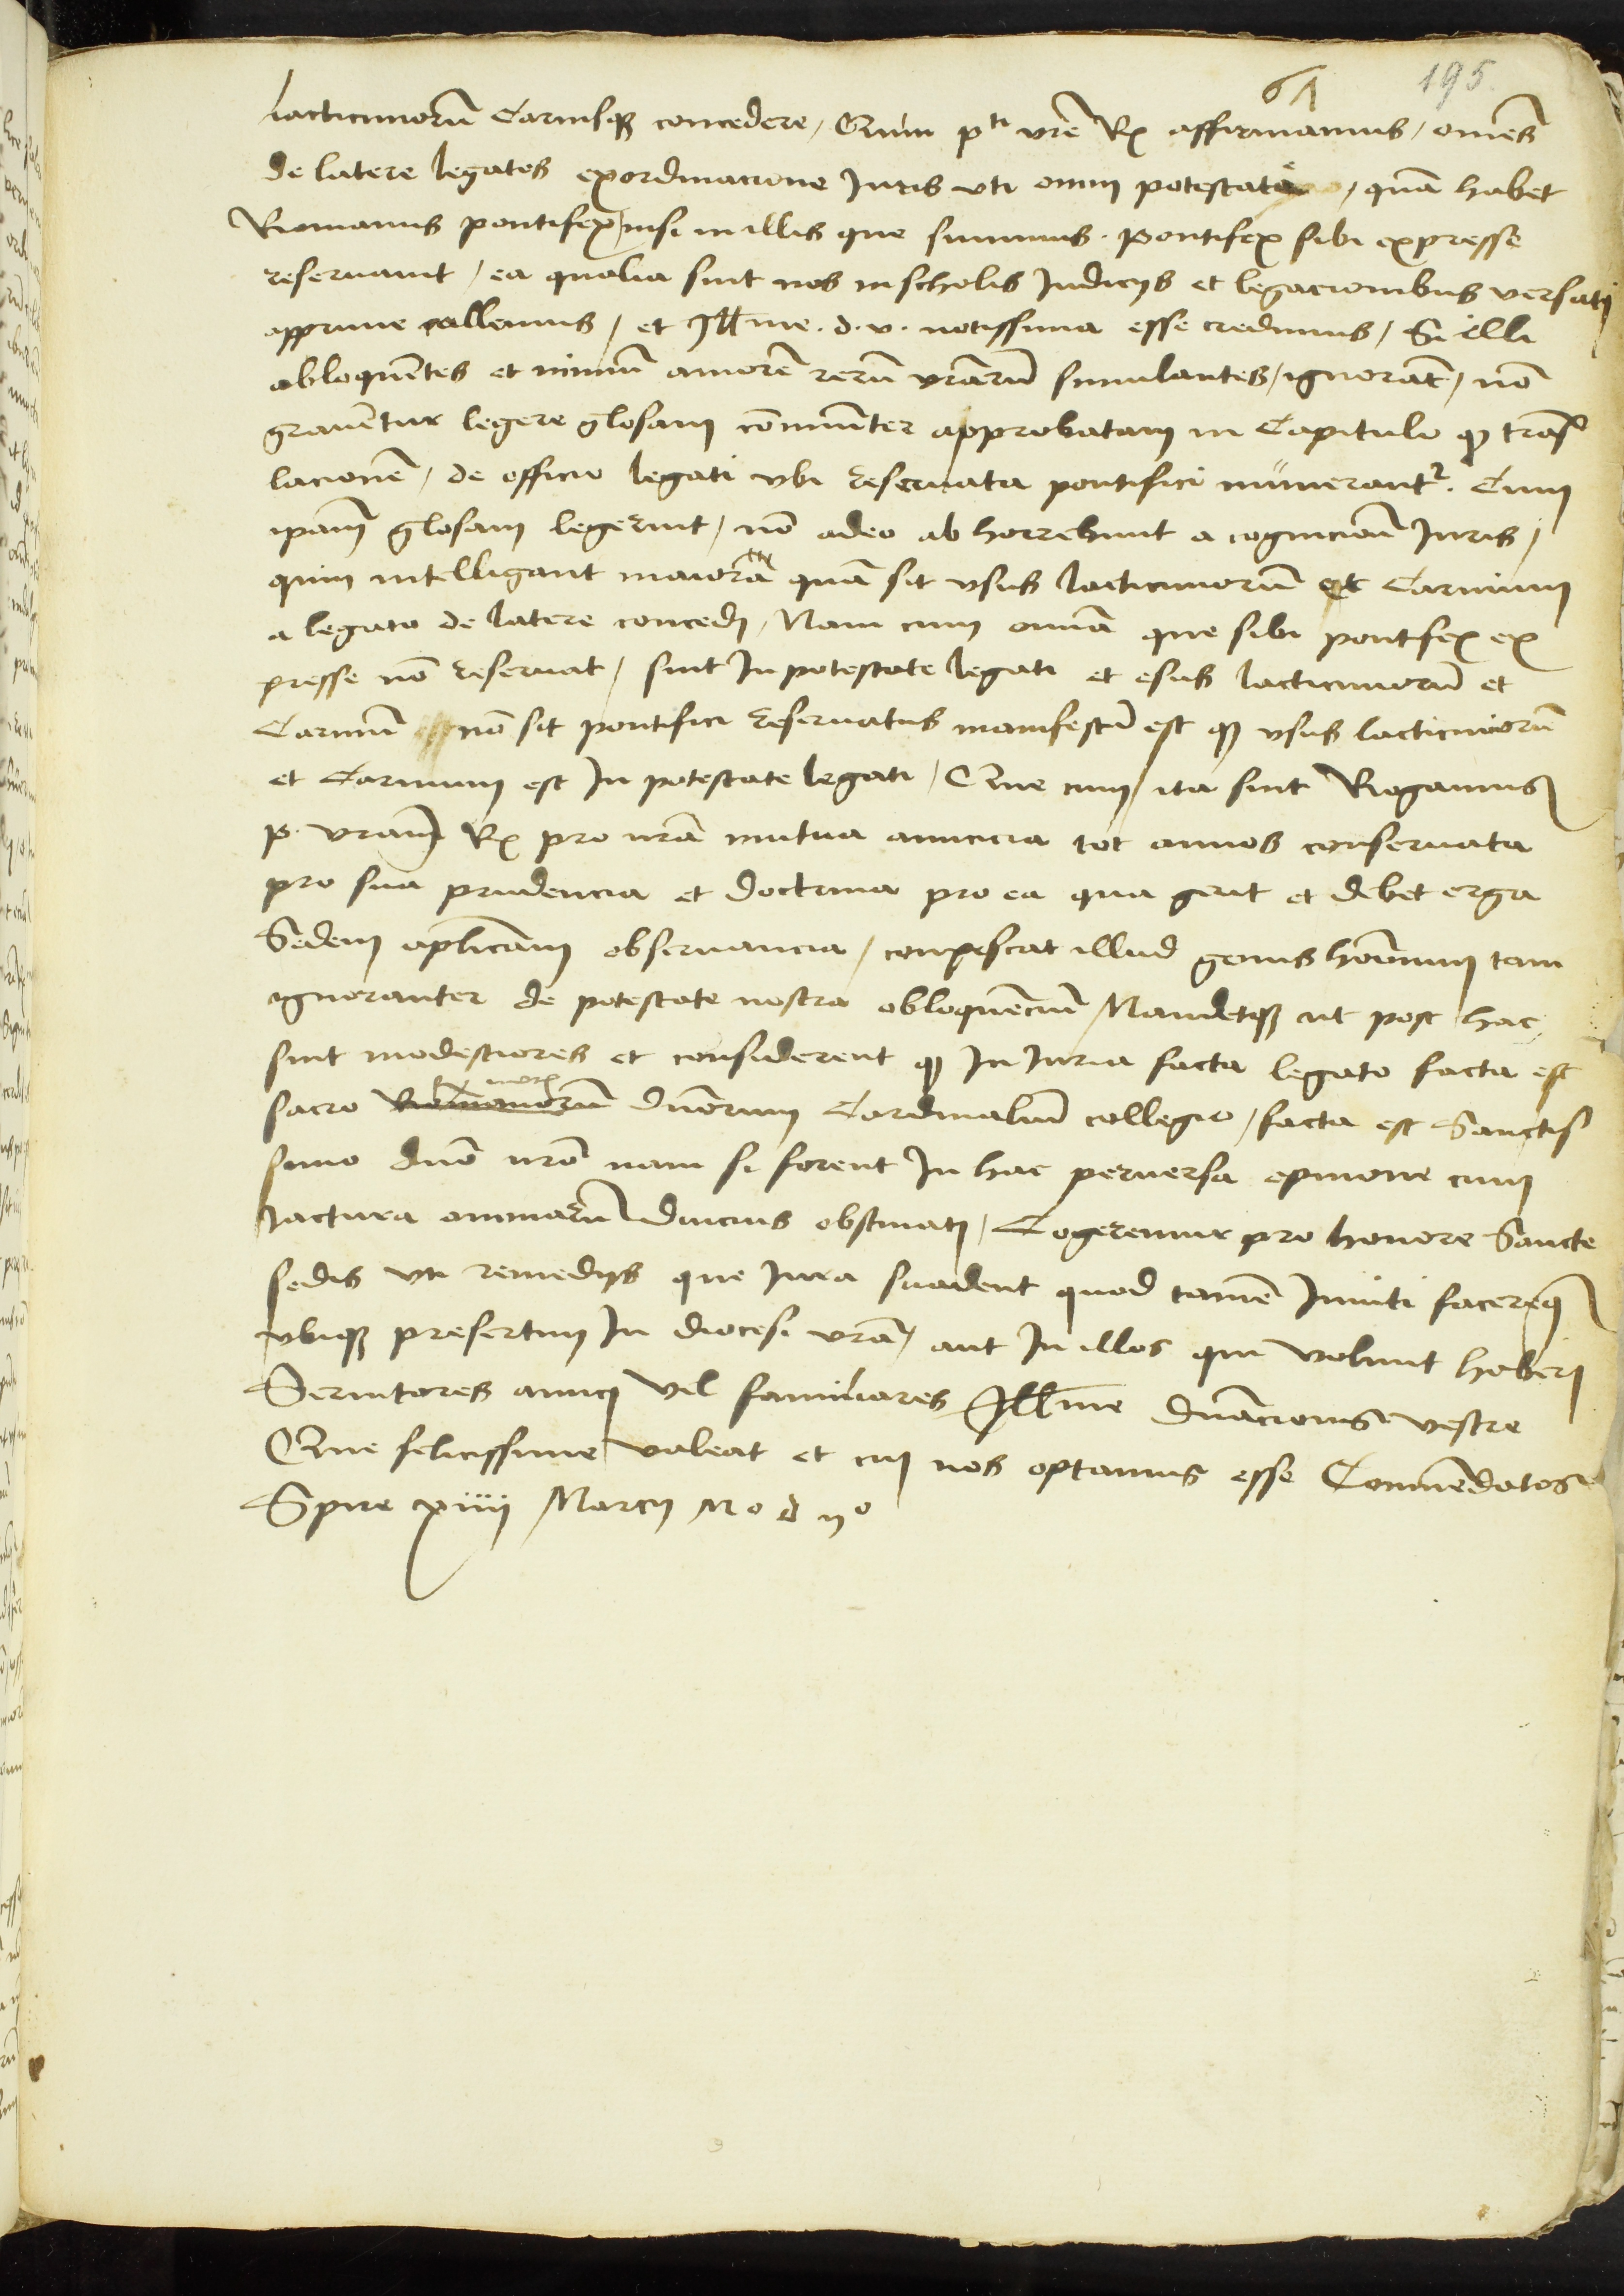 61 195.
lacticiniorũ Carnisq̃ concedere / Quin pti vr̃e Rx affirmamus / om̃es
de latere legatos ex ordinacione Juris vti omni potestate / quã habet
Romanus pontifex / nisi in illis que summus pontifex sibi expresse
reseruauit / ea qualia sint nos in scholis Judicijs et legacionibus versati
apprime callemus / et Illme. d. v. notissima esse credimus / Si illi
obloquẽtes et nimiũ amorẽ rerũ vr̃arũ simulantes / ignorãt / nõ
grauẽtur legere glosam cõmuniter approbatam in Capitulo ꝙ trãs
lacionẽ / de officio legati vbi reseruata pontifici numerantr. Cum
ip̃am glosam legerint / nõ adeo abhorrebunt a cognicioñ Juris /
quin intelligant maiora quã sit vsus lacticiniorũ et Carnium
a legato de latere concedi / Nam cum om̃ia que sibi pontifex ex
presse nõ reseruat / sint In potestate legati et esus lacticiniorũ et
Carniũ nõ sit pontifici reseruatus manifestũ est ꝙ vsus lacticiniorũ
et Carnium est In potestate legati / Que cum ita sint Rogamus
p. vram̃ Rx pro nr̃a mutua amicicia tot annos conseruata
pro sua prudencia et doctrina pro ea qua gerit et debet erga
Sedem ap̃licam obseruancia / conpescat illud genus hom̃inum tam
ignoranter de potestate nostra obloquẽciũ / Mandetq̃ ut post hac
sint modestiores et considerent ꝙ In Iuria facta legato facta est
sacro Romanorũ dñorum Cardinaliũ collegio / facta est Sanctis
simo dño nr̃o nam si forent In hac peruersa opinione cum
Iactura animarũ diucius obstinati / Cogeremur pro honore Sancte
sedis vti remedijs que Iura suadent quod tamẽ Inuiti facerem9
vbiq̃ presertim In diocesi vr̃a / aut In illos qui volunt haberi
Seruitores amici vel familiares Illme dñacionis vestre
Que felicissime valeat et cui nos optamus esse Commẽdatos
Spire xiiij Marcij M o d ijo